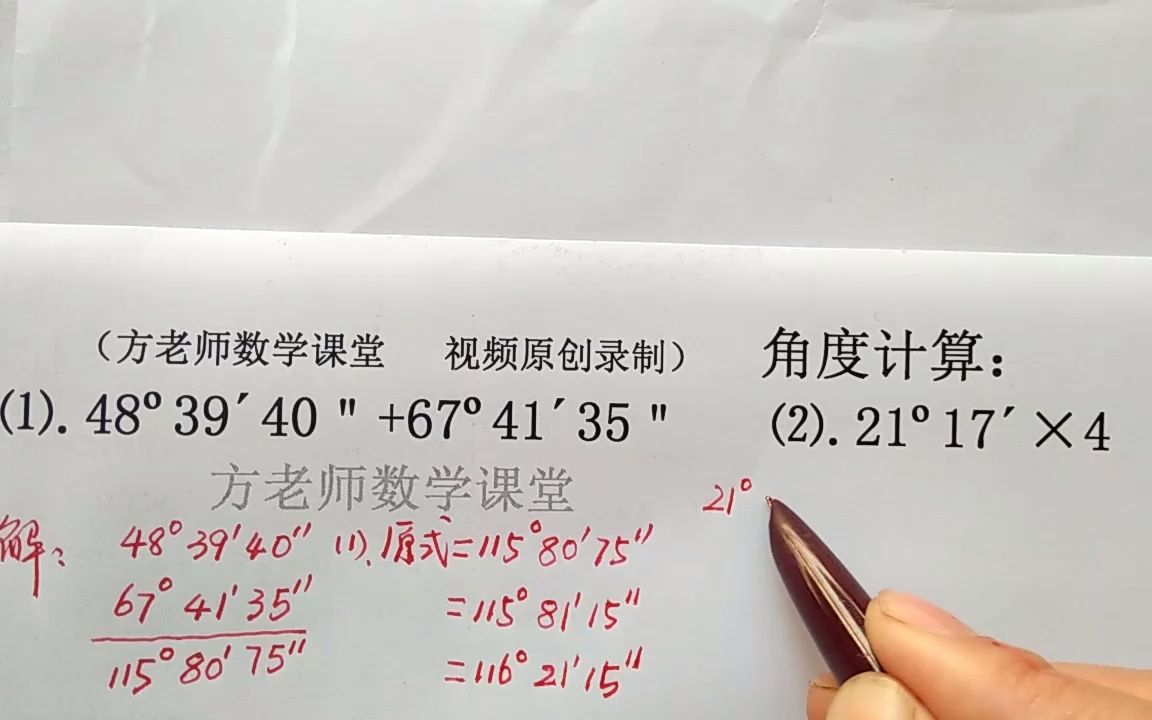 （方老师数学课堂 视频原创录制） 角度计算：
⑴. 48º 39′ 40 " +67º 41′ 35 " ⑵. 21º 17′ ×4
方老师数学课堂
21°
解： 48° 39′ 40″ (1). 原式=115° 80′ 75″
67° 41′ 35″ =115° 81′ 15″
115° 80′ 75″ =116° 21′ 15″